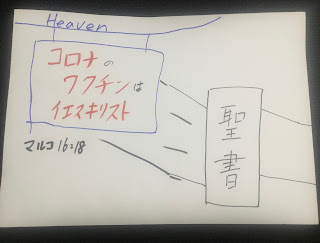 Heaven
コロナの
ワクチンは
イエスキリスト
マルコ 16:18
聖書